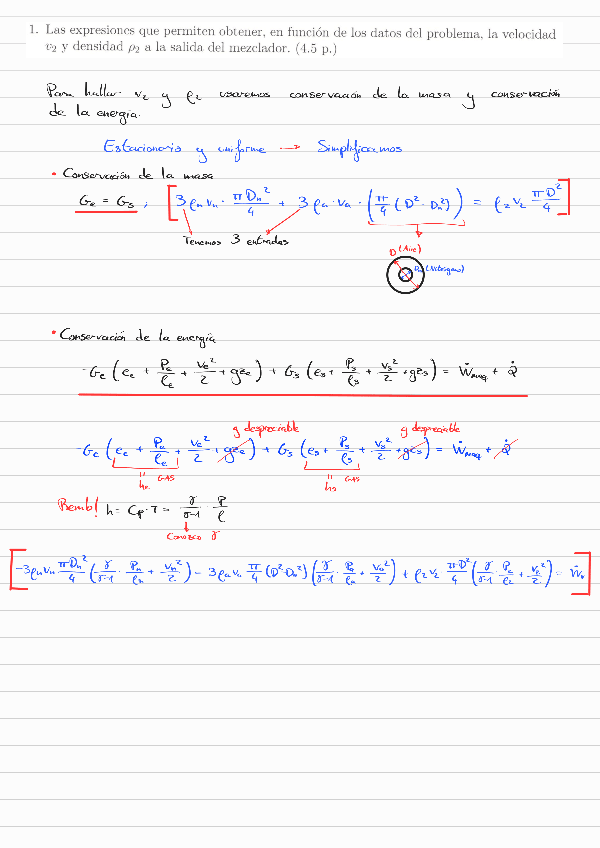 1. Las expresiones que permiten obtener, en función de los datos del problema, la velocidad
v₂ y densidad ρ₂ a la salida del mezclador. (4.5 p.)
Para hallar v₂ y ρ₂ usaremos conservación de la masa y conservación
de la energía.
Estacionario y uniforme → Simplificamos
• Conservación de la masa
Ge = Gs ; [3 ρn vn · πDn²/4 + 3 ρa · va · (π/4 (D² - Dn²)) = ρ₂ v₂ πD²/4]
Tenemos 3 entradas
D (Aire)
Dn (Nitrógeno)
• Conservación de la energía
-Ge (ee + Pe/ρe + ve²/2 + gze) + Gs (es + Ps/ρs + vs²/2 + gzs) = Ẇmaq + Q̇
g despreciable g despreciable
-Ge (ee + Pe/ρe + ve²/2 + gze) + Gs (es + Ps/ρs + vs²/2 + gzs) = Ẇmaq + Q̇
he GAS hs GAS
Remb! h = Cp · T = γ/γ-1 · P/ρ
Conozco γ
[-3ρn vn πDn²/4 (γ/γ-1 · Pn/ρn + vn²/2) - 3ρa va π/4 (D²-Dn²) (γ/γ-1 · Pa/ρa + va²/2) + ρ₂ v₂ πD²/4 (γ/γ-1 · P₂/ρ₂ + v₂²/2) = Ẇ]